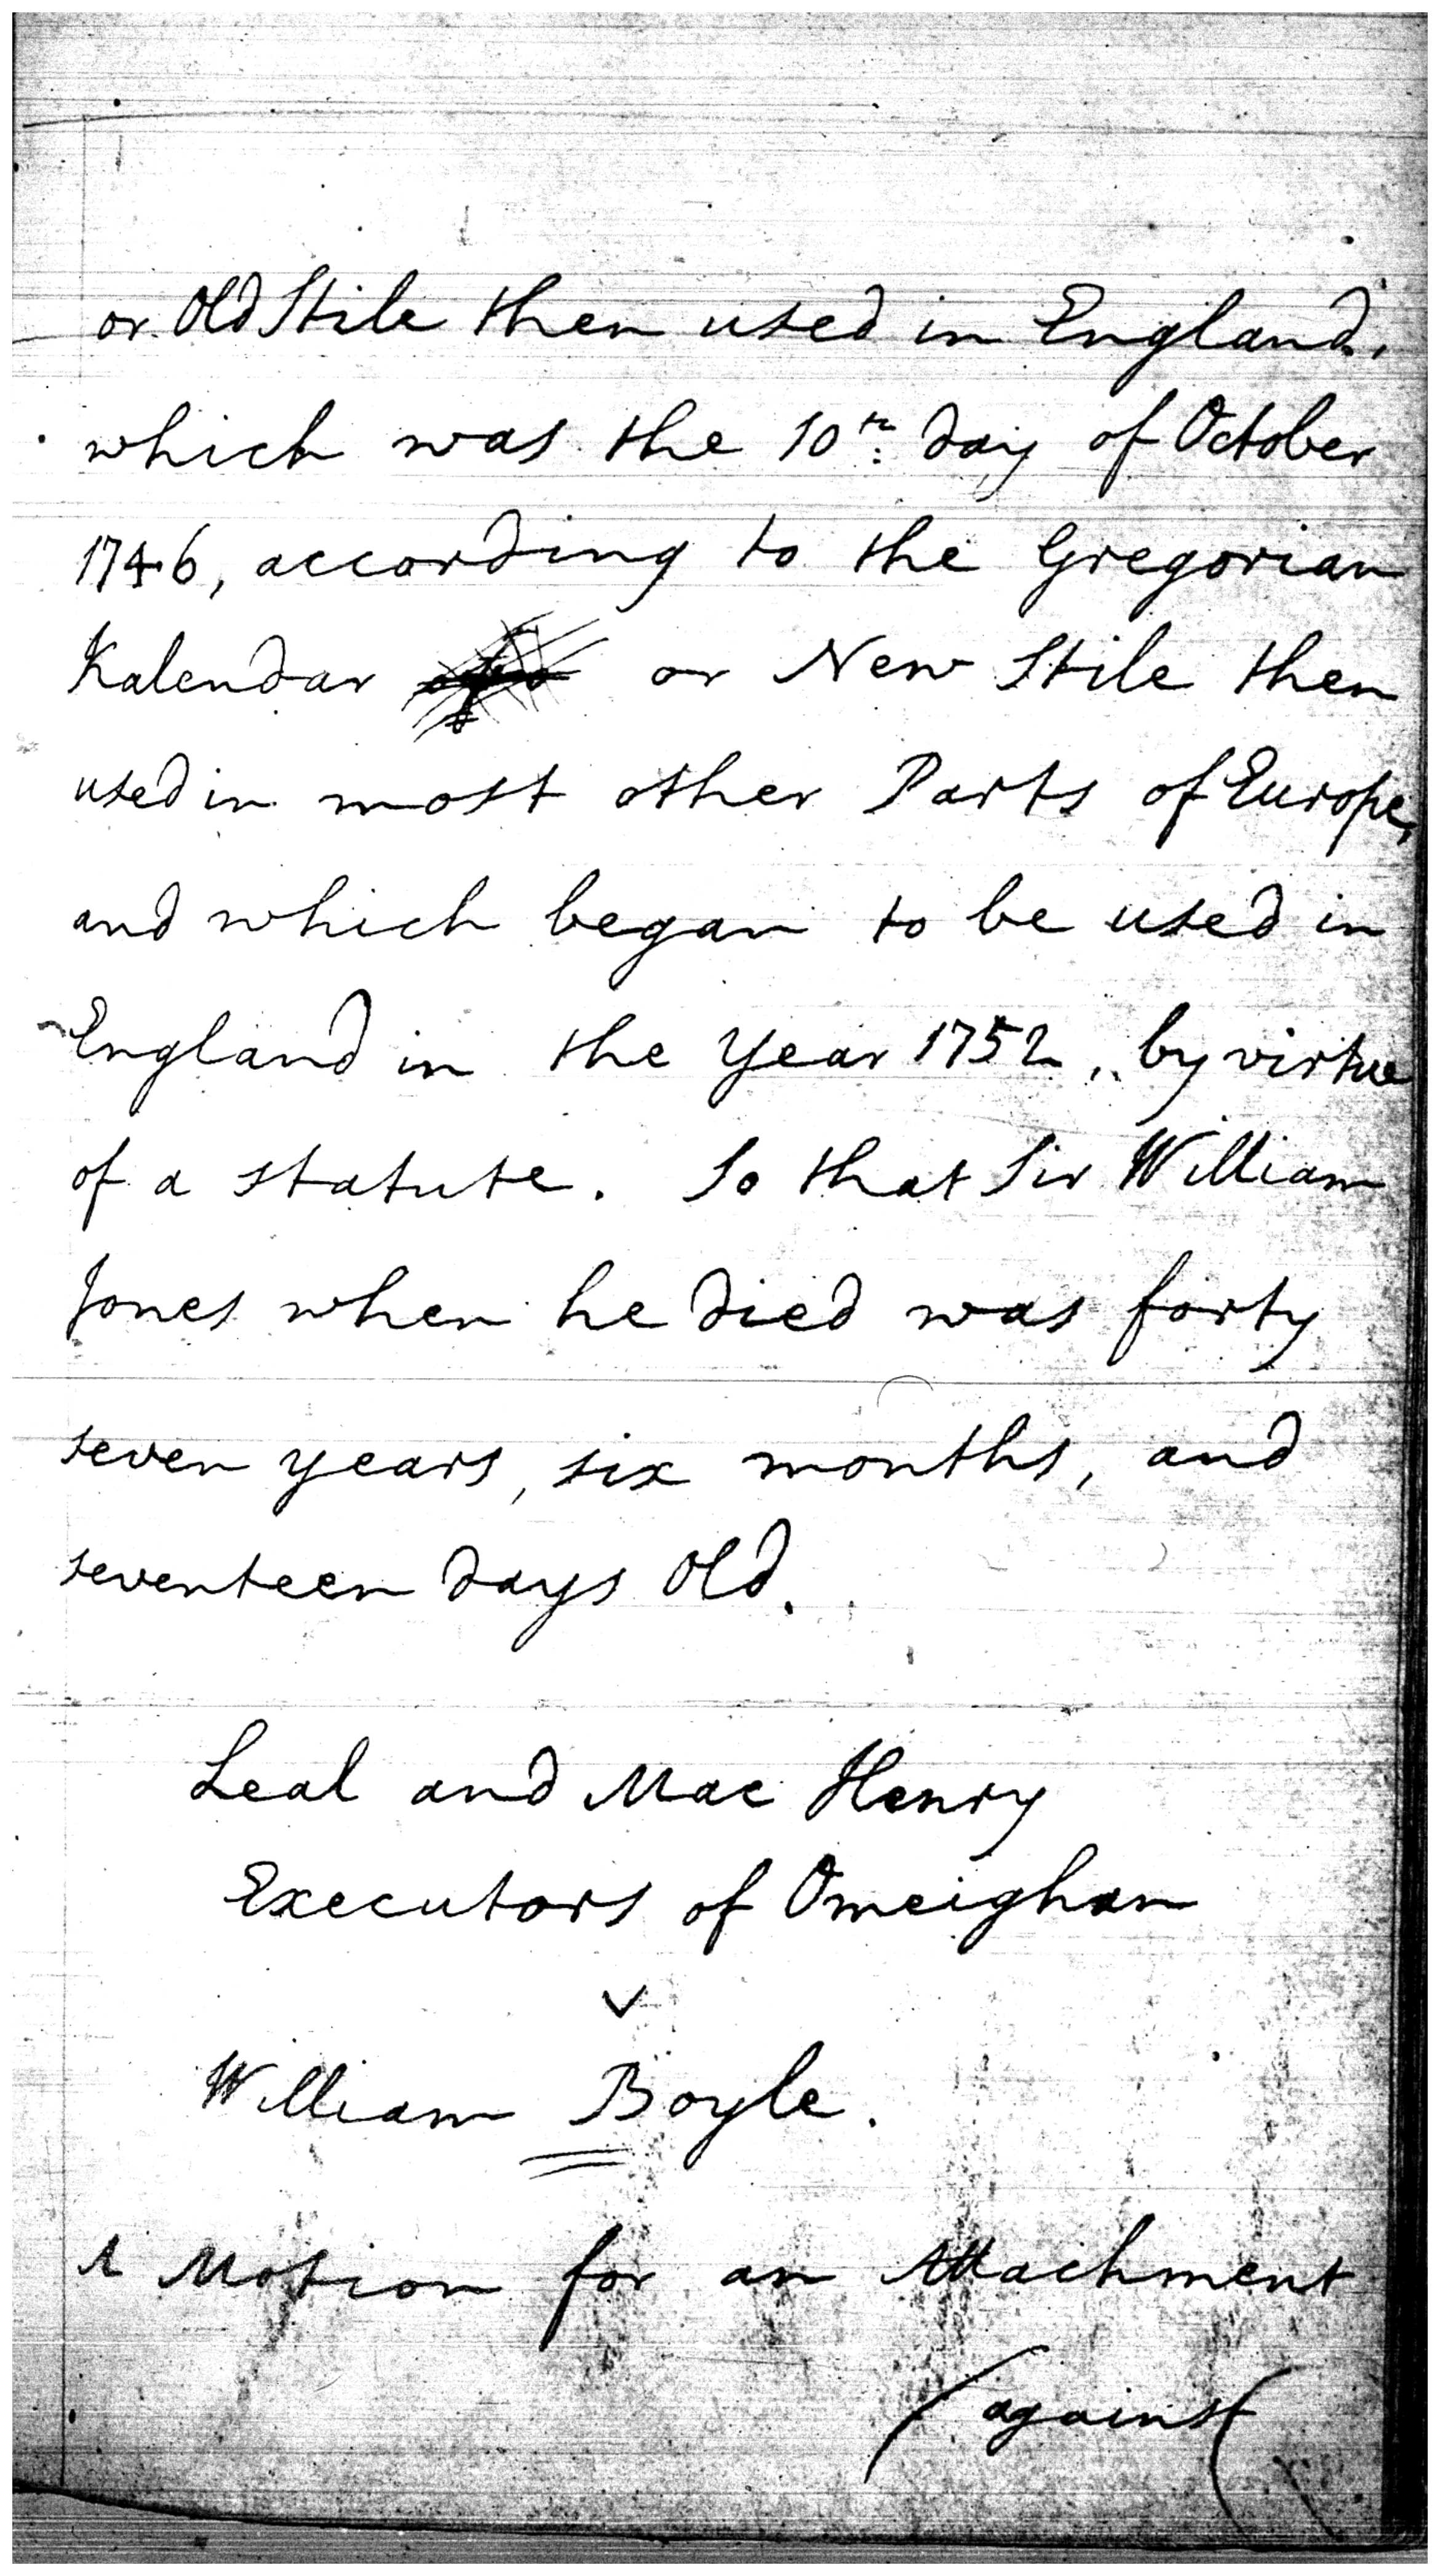 or Old Stile then used in England,
which was the 10th: day of October
1746, according to the Gregorian
Kalendar or New Stile then
used in most other Parts of Europe,
and which began to be used in
England in the Year 1752, by virtue
of a statute. So that Sir William
Jones when he died was forty
seven years, six months, and
seventeen days old.
Leal and Mac Henry
Executors of Omeighan
v
William Boyle.
A Motion for an Attachment
(against(